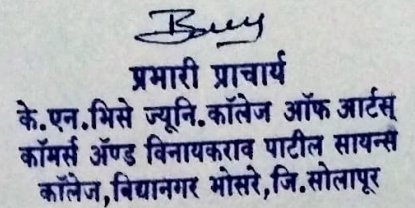 प्रभारी प्राचार्य
के.एन.भिसे ज्युनि.कॉलेज ऑफ आर्टस्
कॉमर्स ॲण्ड विनायकराव पाटील सायन्स
कॉलेज,विद्यानगर भोसरे,जि.सोलापूर